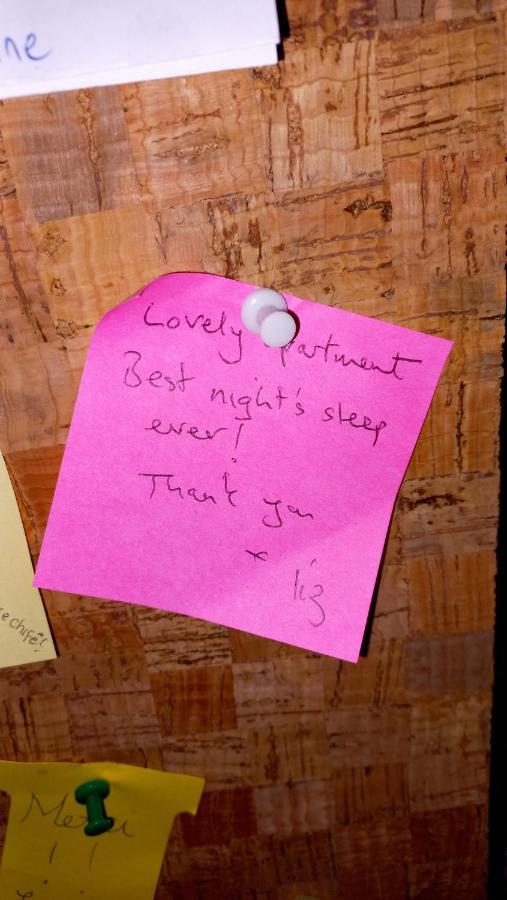 ne
Lovely partment
Best night's sleep
ever!
Thank you
x
liz
Merci
! !